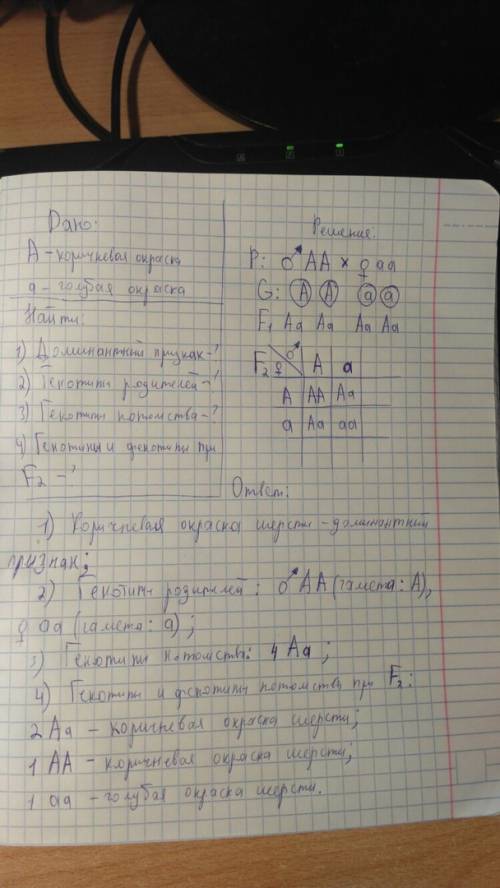 Дано:
A - коричневая окраска
a - голубая окраска
Найти:
1) Доминантный признак-?
2) Генотипы родителей-?
3) Генотипы потомства-?
4) Генотипы и фенотипы при
F2 -?
Решение:
P: ♂AA × ♀aa
G: A A a a
F1 Aa Aa Aa Aa
F2 ♀ ♂ A a
A AA Aa
a Aa aa
Ответ:
1) Коричневая окраска шерсти - доминантный
признак;
2) Генотипы родителей: ♂AA (гамета: A),
♀aa (гамета: a);
3) Генотипы потомства: 4 Aa;
4) Генотипы и фенотипы потомства при F2:
2 Aa - коричневая окраска шерсти;
1 AA - коричневая окраска шерсти;
1 aa - голубая окраска шерсти.